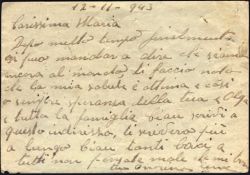 12-11-943
Carissima Maria
Dopo molto tempo finalmente
si può mandare a dire che siamo
ancora al mondo ti faccio noto
che la mia salute è ottima e così
o sempre speranza della tua e di
tutta la famiglia ciau scrivi a
questo indirizzo, ti scriverò più
a lungo ciau tanti baci a
tutti non pensate male